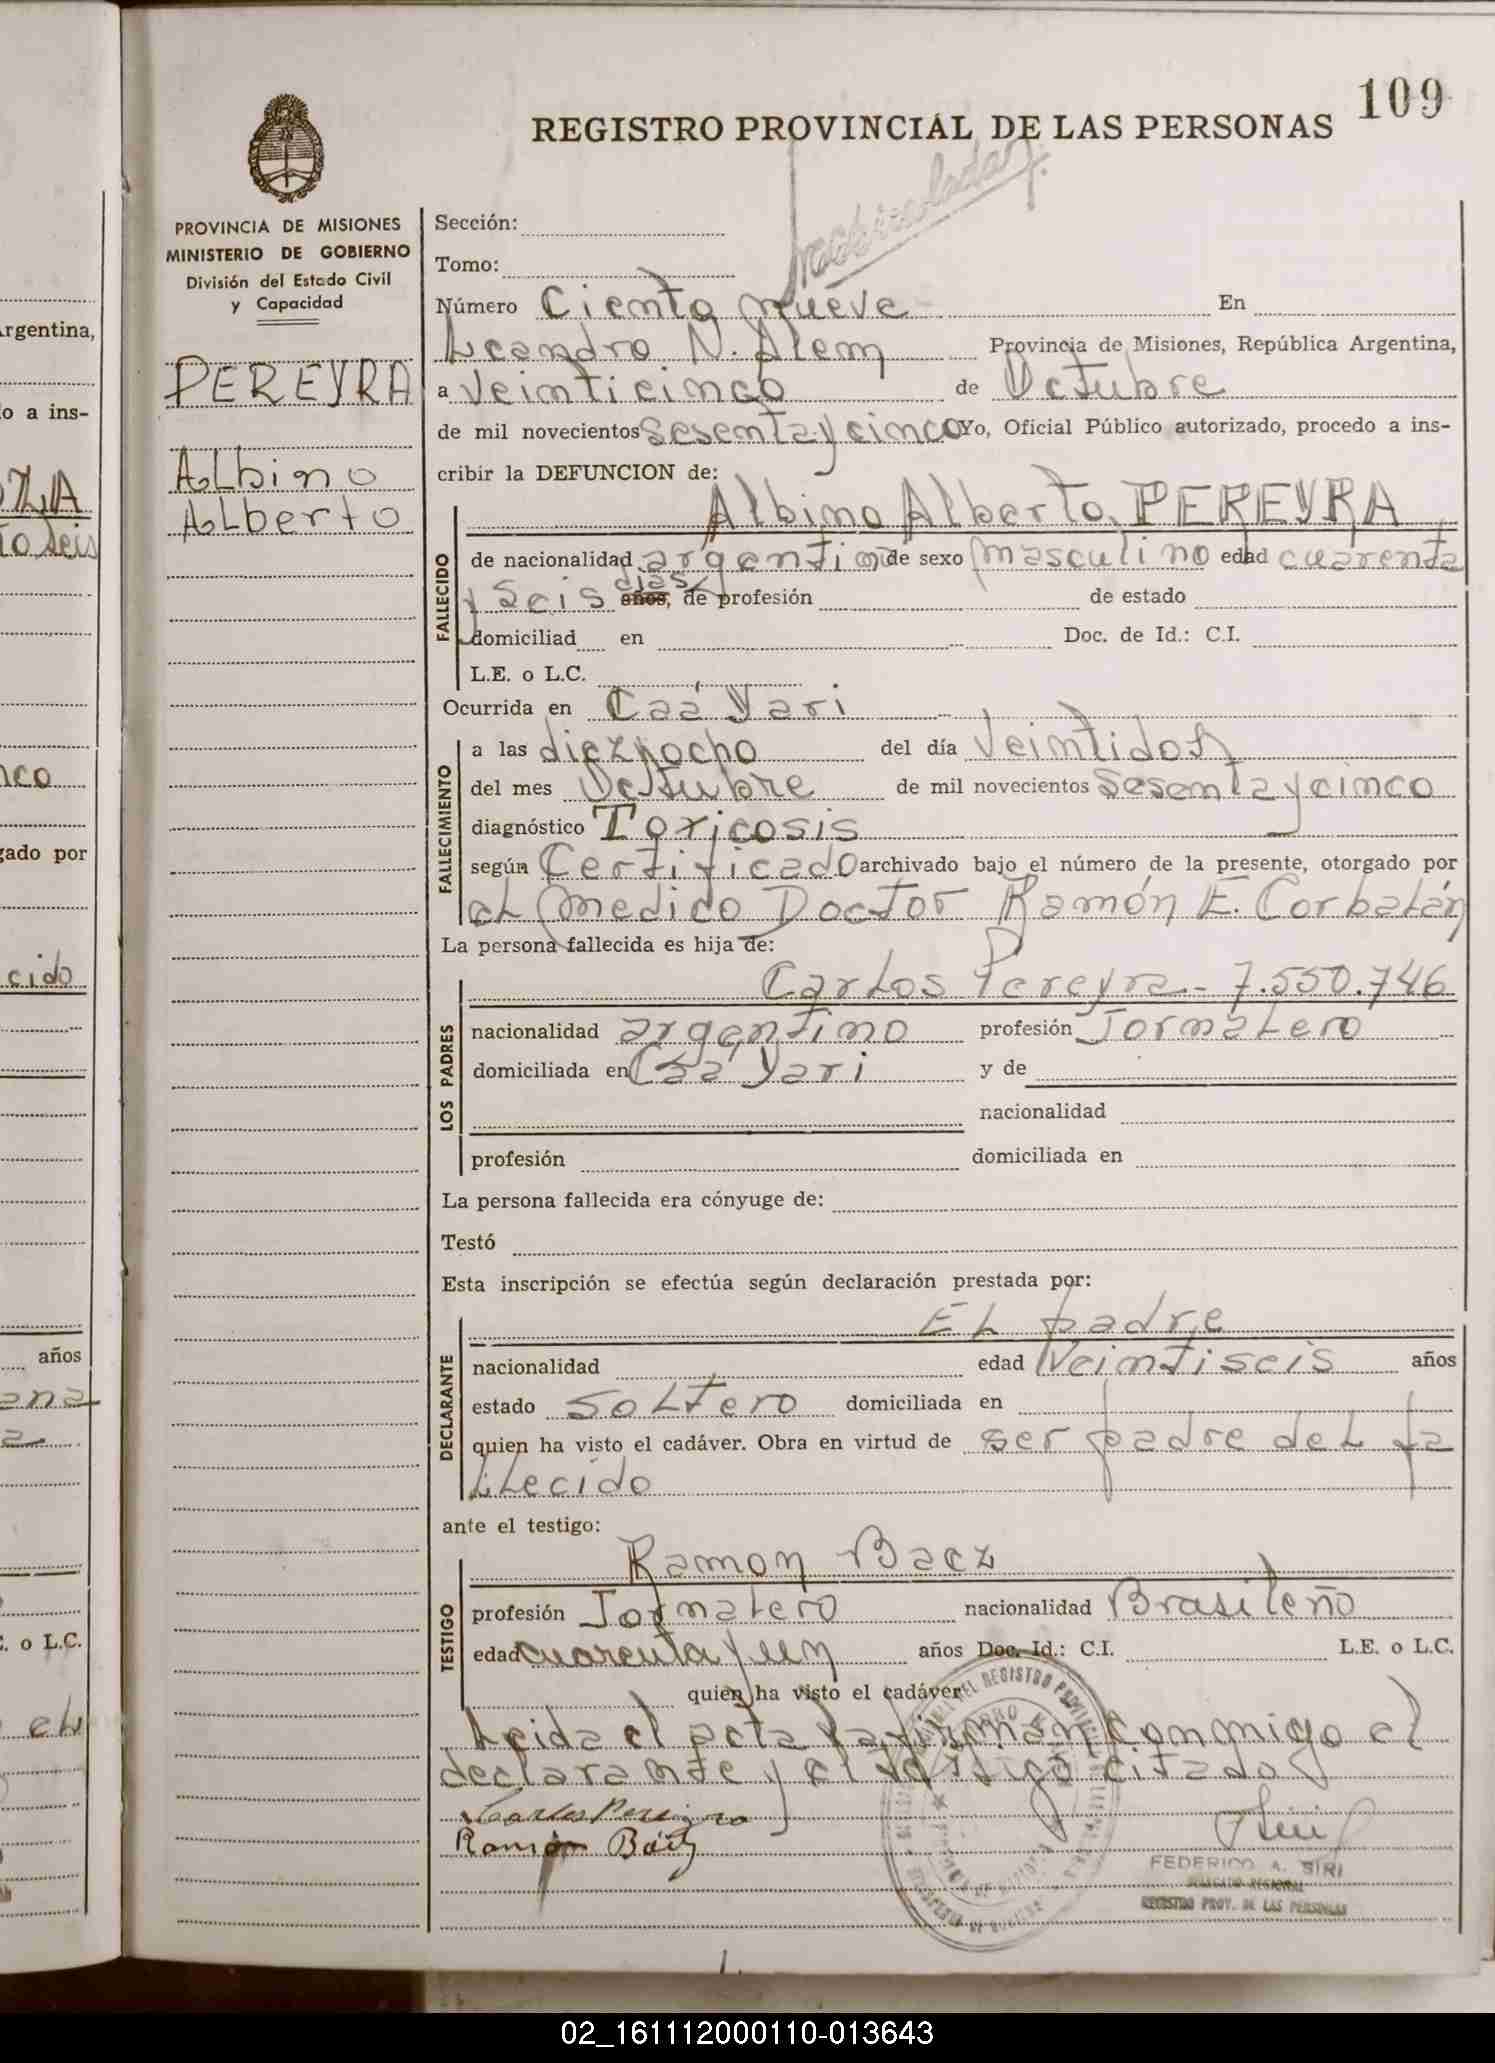 109
REGISTRO PROVINCIAL DE LAS PERSONAS
PROVINCIA DE MISIONES
MINISTERIO DE GOBIERNO
División del Estado Civil
y Capacidad
PEREYRA
Albino
Alberto
Sección:
Tomo:
Número Ciento nueve En
Leandro N. Alem Provincia de Misiones, República Argentina,
a Veinticinco de Octubre
de mil novecientos sesenta y cinco Yo, Oficial Público autorizado, procedo a ins-
cribir la DEFUNCION de:
Albino Alberto PEREYRA
FALLECIDO
de nacionalidad argentino de sexo masculino edad cuarenta
y seis días años, de profesión de estado
domiciliad en Doc. de Id.: C.I.
L.E. o L.C.
Ocurrida en Caá Yari
FALLECIMIENTO
a las diez y ocho del día Veintidos
del mes Octubre de mil novecientos sesenta y cinco
diagnóstico Toxicosis
según Certificado archivado bajo el número de la presente, otorgado por
el medico Doctor Ramón E. Corbalán
La persona fallecida es hija de:
LOS PADRES
Carlos Pereyra - 7.550.746
nacionalidad argentino profesión Jornalero
domiciliada en Caá Yari y de
nacionalidad
profesión domiciliada en
La persona fallecida era cónyuge de:
Testó
Esta inscripción se efectúa según declaración prestada por:
DECLARANTE
El padre
nacionalidad edad Veintiseis años
estado soltero domiciliada en
quien ha visto el cadáver. Obra en virtud de ser padre del fa
llecido
ante el testigo:
TESTIGO
Ramon Baez
profesión Jornalero nacionalidad Brasileño
edad cuarenta y un años Doc. Id.: C.I. L.E. o L.C.
quien ha visto el cadáver
Leida el acta la firman conmigo el
declarante y el testigo citado
Carlos Pereyra
Ramón Báez
FEDERICO A. SIRI
DELEGADO REGIONAL
REGISTRO PROV. DE LAS PERSONAS
rgentina,
o a ins-
ZA
seis
nco
gado por
cido
años
ana
a
. o L.C.
el
02_161112000110-013643